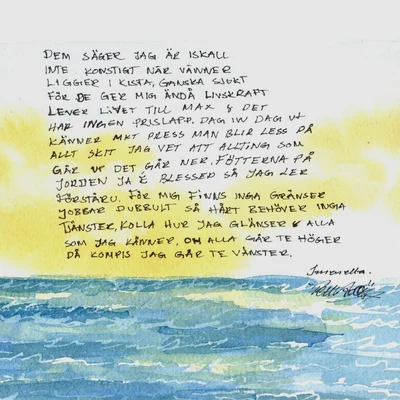 DEM SÄGER JAG ÄR ISKALL
INTE KONSTIGT NÄR VÄNNER
LIGGER I KISTA, GANSKA SJUKT
FÖR DE GER MIG ÄNDÅ LIVSKRAFT
LEVER LIVET TILL MAX & DET
HAR INGEN PRISLAPP. DAG IN DAG UT
KÄNNER MKT PRESS MAN BLIR LESS PÅ
ALLT SKIT JAG VET ATT ALLTING SOM
GÅR UT DET GÅR NER. FÖTTERNA PÅ
JORDEN JA É BLESSED SÅ JAG LER
FÖRSTÅRU. FÖR MIG FINNS INGA GRÄNSER
JOBBAR DUBBULT SÅ HÅRT BEHÖVER INGA
TJÄNSTER, KOLLA HUR JAG GLÄNSER & ALLA
SOM JAG KÄNNER, OM ALLA GÅR TE HÖGER
DÅ KOMPIS JAG GÅR TE VÄNSTER.